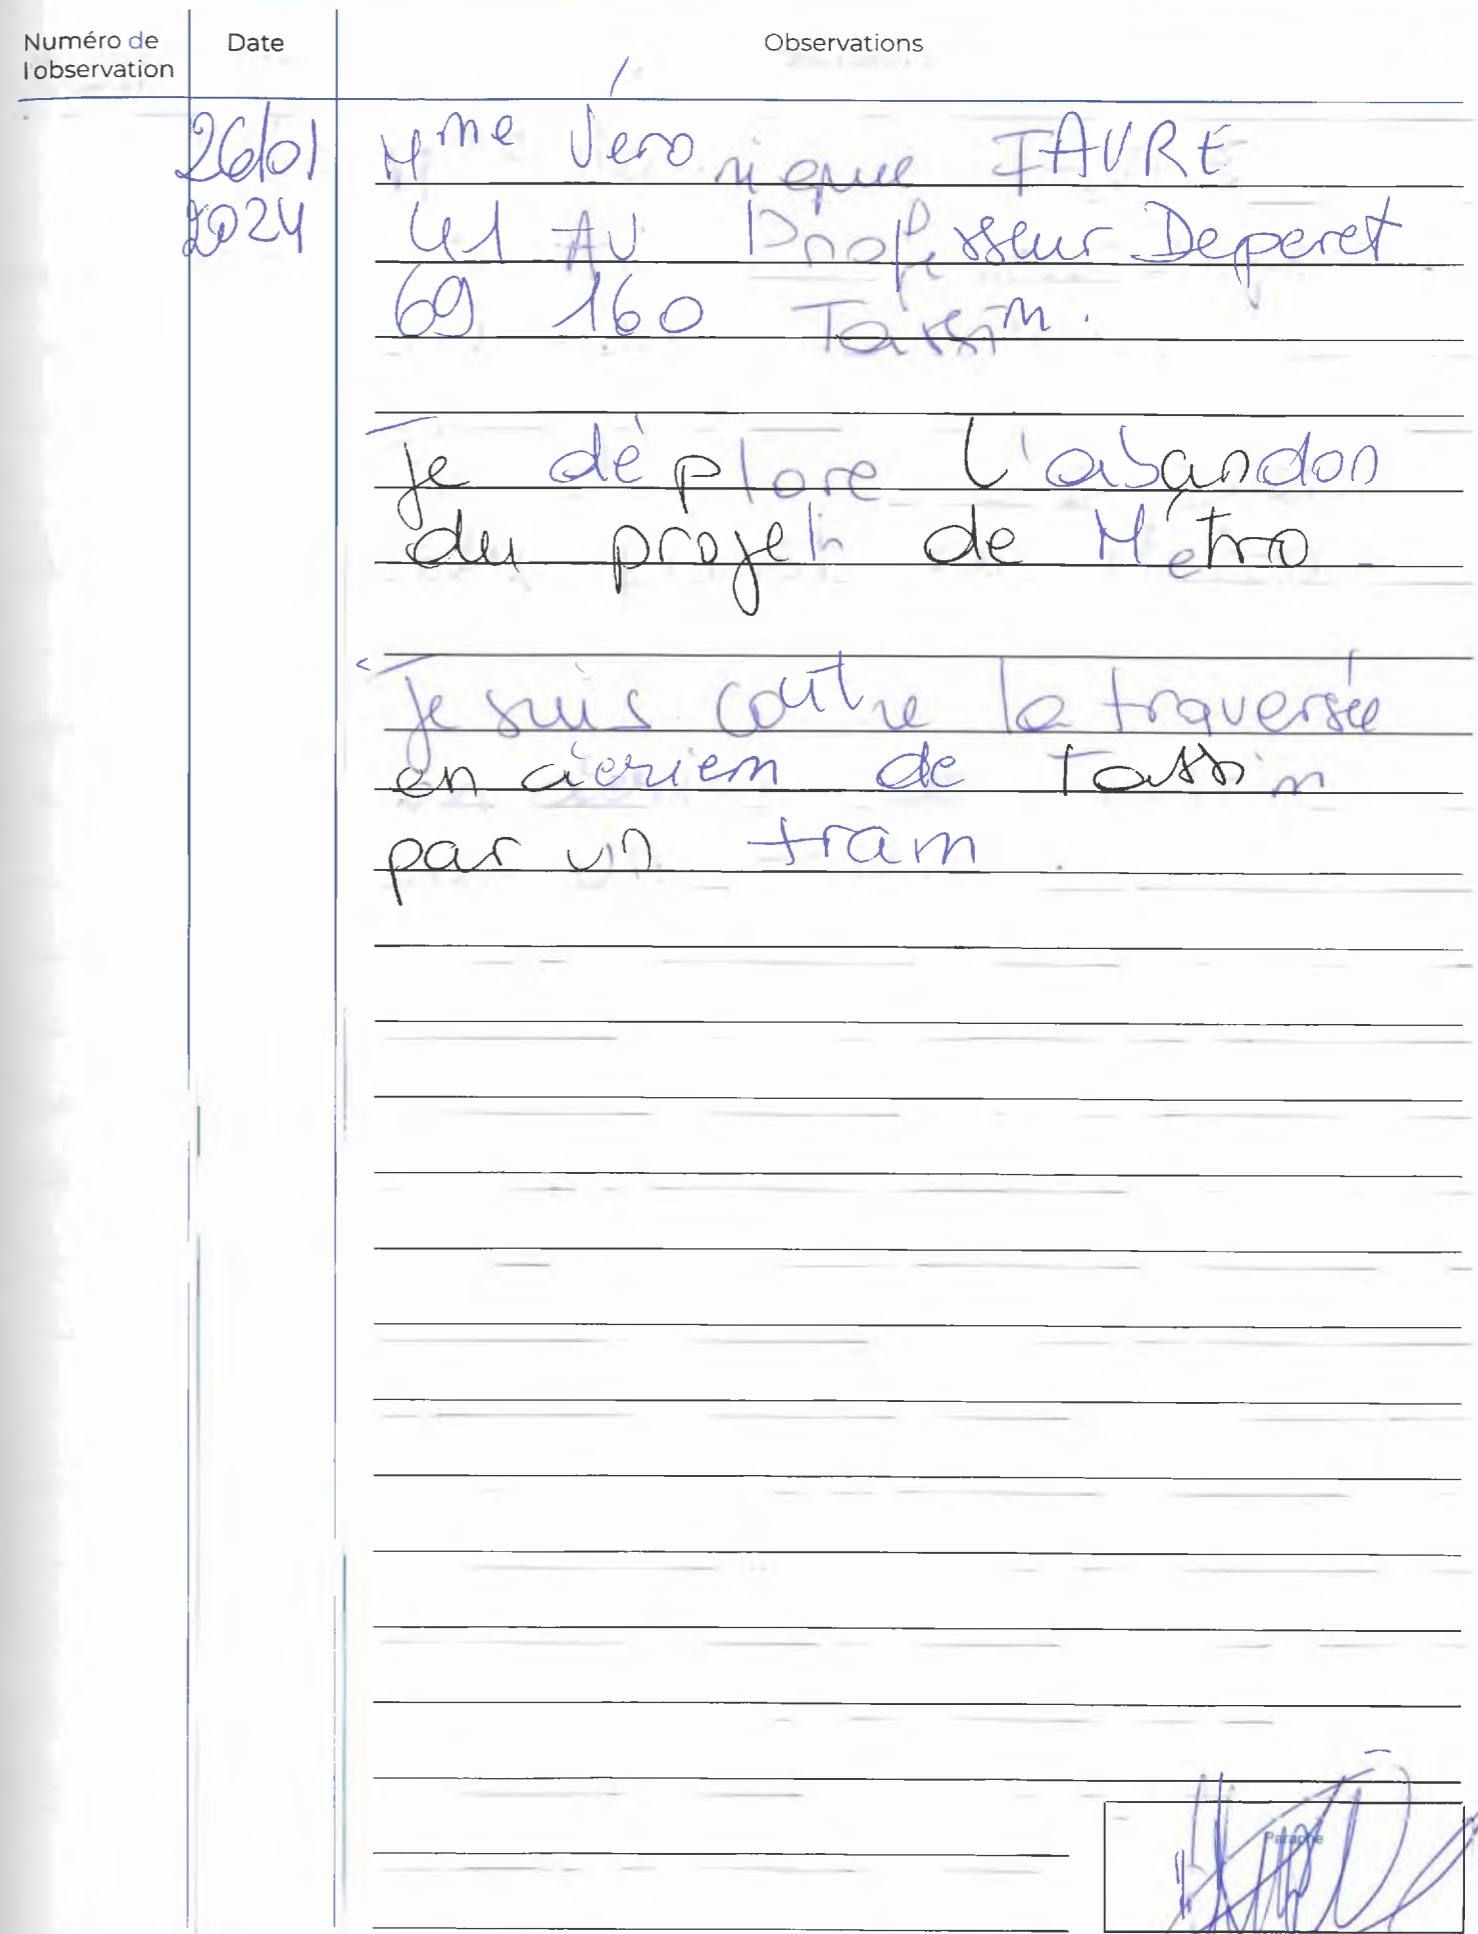 Numéro de l'observation
Date
Observations
26/01
2024
Mme Véronique FAVRE
41 AV Professeur Deperet
69 160 Tassin.
Je déplore l'abandon
du projet de Métro.
Je suis contre la traversée
en aérien de Tassin
par un tram.
Paraphe